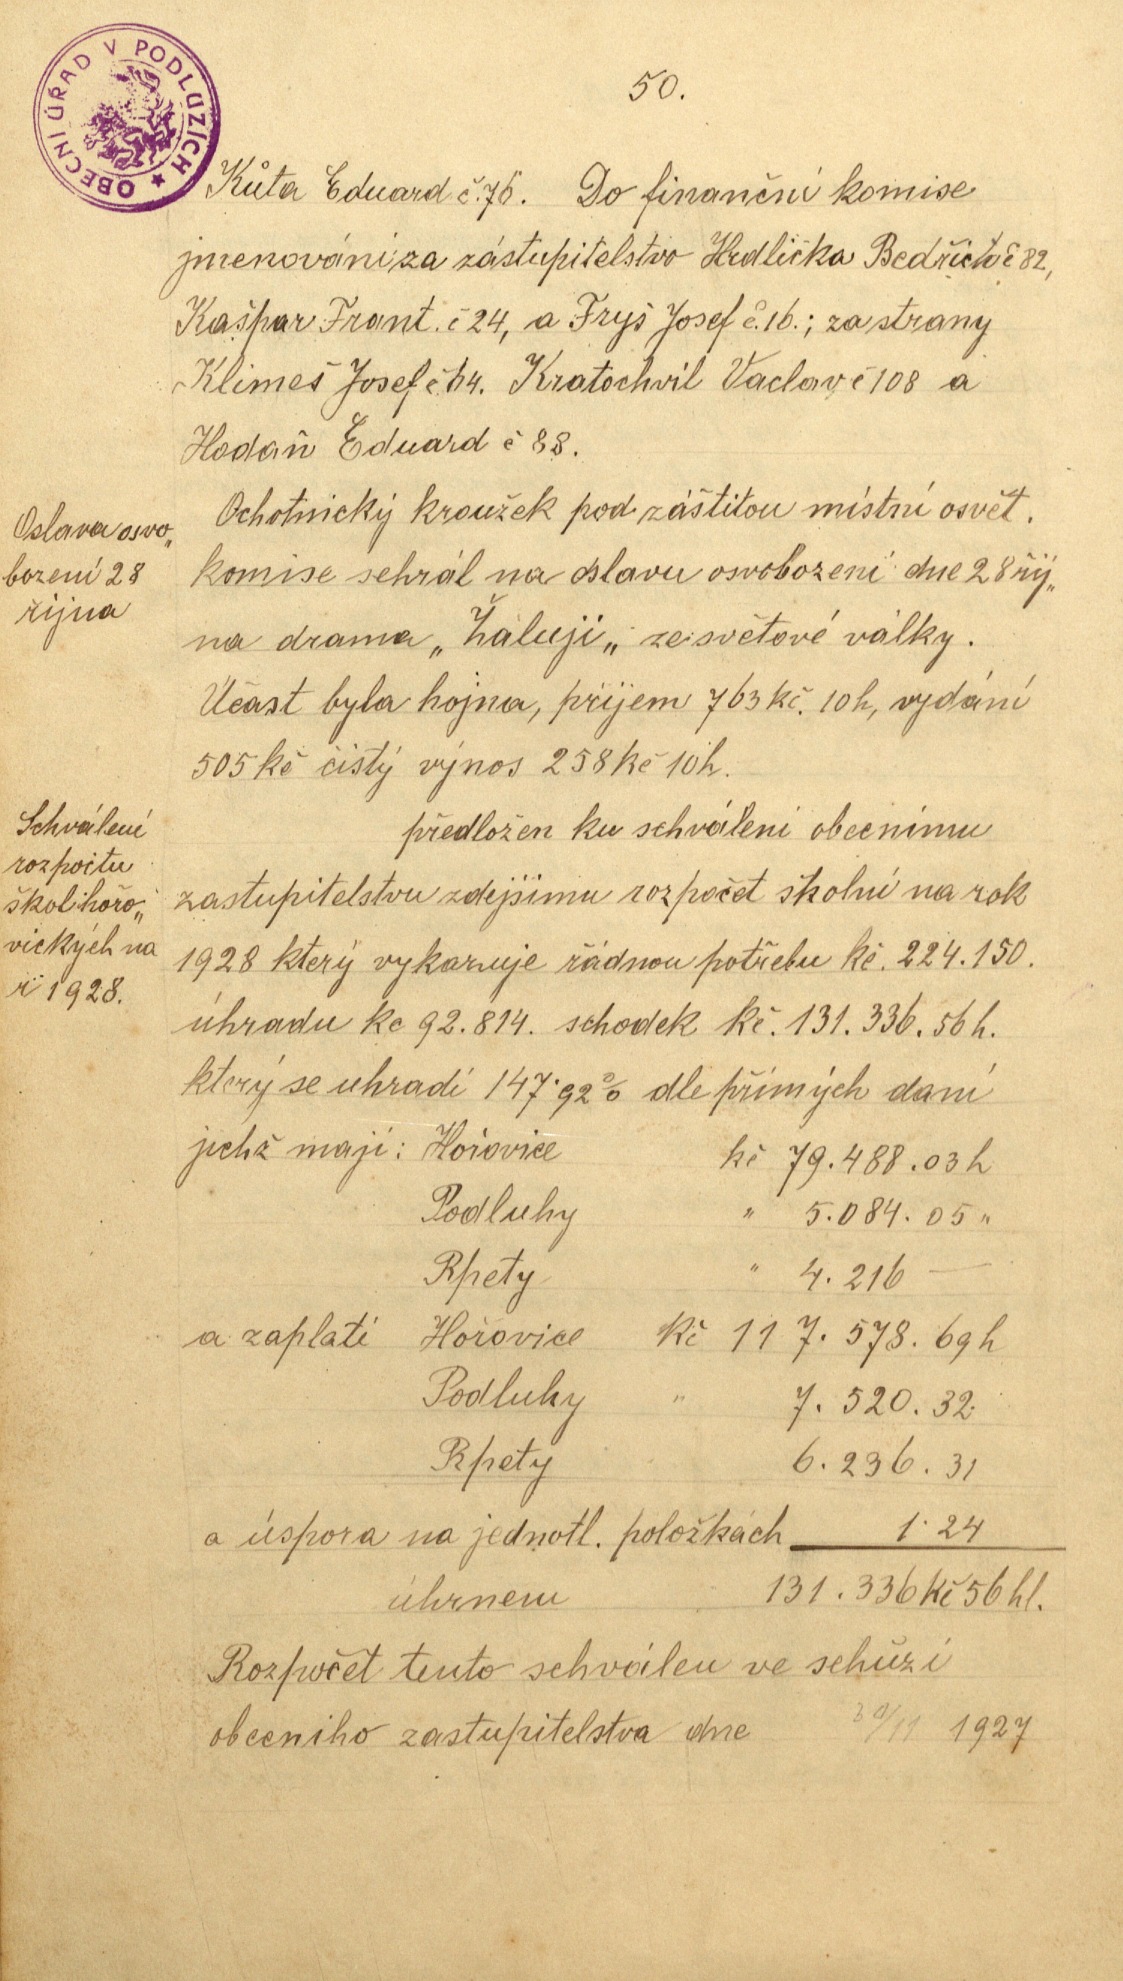 OBECNÍ ÚŘAD V PODLUZÍCH
50.
Kůta Eduard č.76. Do finanční komise
jmenováni, za zástupitelstvo Hrdlička Bedřich č 82,
Kašpar Frant. č 24, a Fryš Josef č.16.; za strany
Klimeš Josef č 64. Kratochvil Vaclav č 108 a
Hodaň Eduard č 88.
Oslava osvo„
bození 28
října
Ochotnický kroužek pod záštitou místní osvět.
komise sehrál na oslavu osvobození dne 28 říj„
na drama „Žaluji„ ze světové války.
Účast byla hojna, příjem 763 kč. 10h, vydání
505 kč čistý výnos 258 kč 10h.
Schválení
rozpočtu
škol hořo„
vických na
r 1928.
předložen ku schváleni obecnimu
zastupitelstvu zdejšimu rozpočet školní na rok
1928 který vykazuje řádnou potřebu kč. 224.150.
úhradu kc 92.814. schodek kč. 131.336.56 h.
který se uhradí 147.92% dle přímých daní
jichž mají: Hořovice kč 79.488.03 h
Podluhy " 5.084.05 "
Rpety " 4.216 —
a zaplatí Hořovice Kč 117.578.69 h
Podluhy " 7.520.32
Rpety 6.236.31
a úspora na jednotl. položkách 1.24
úhrnem 131.336 Kč 56 hl.
Rozpočet tento schválen ve schůzi
obecniho zastupitelstva dne 30/11 1927